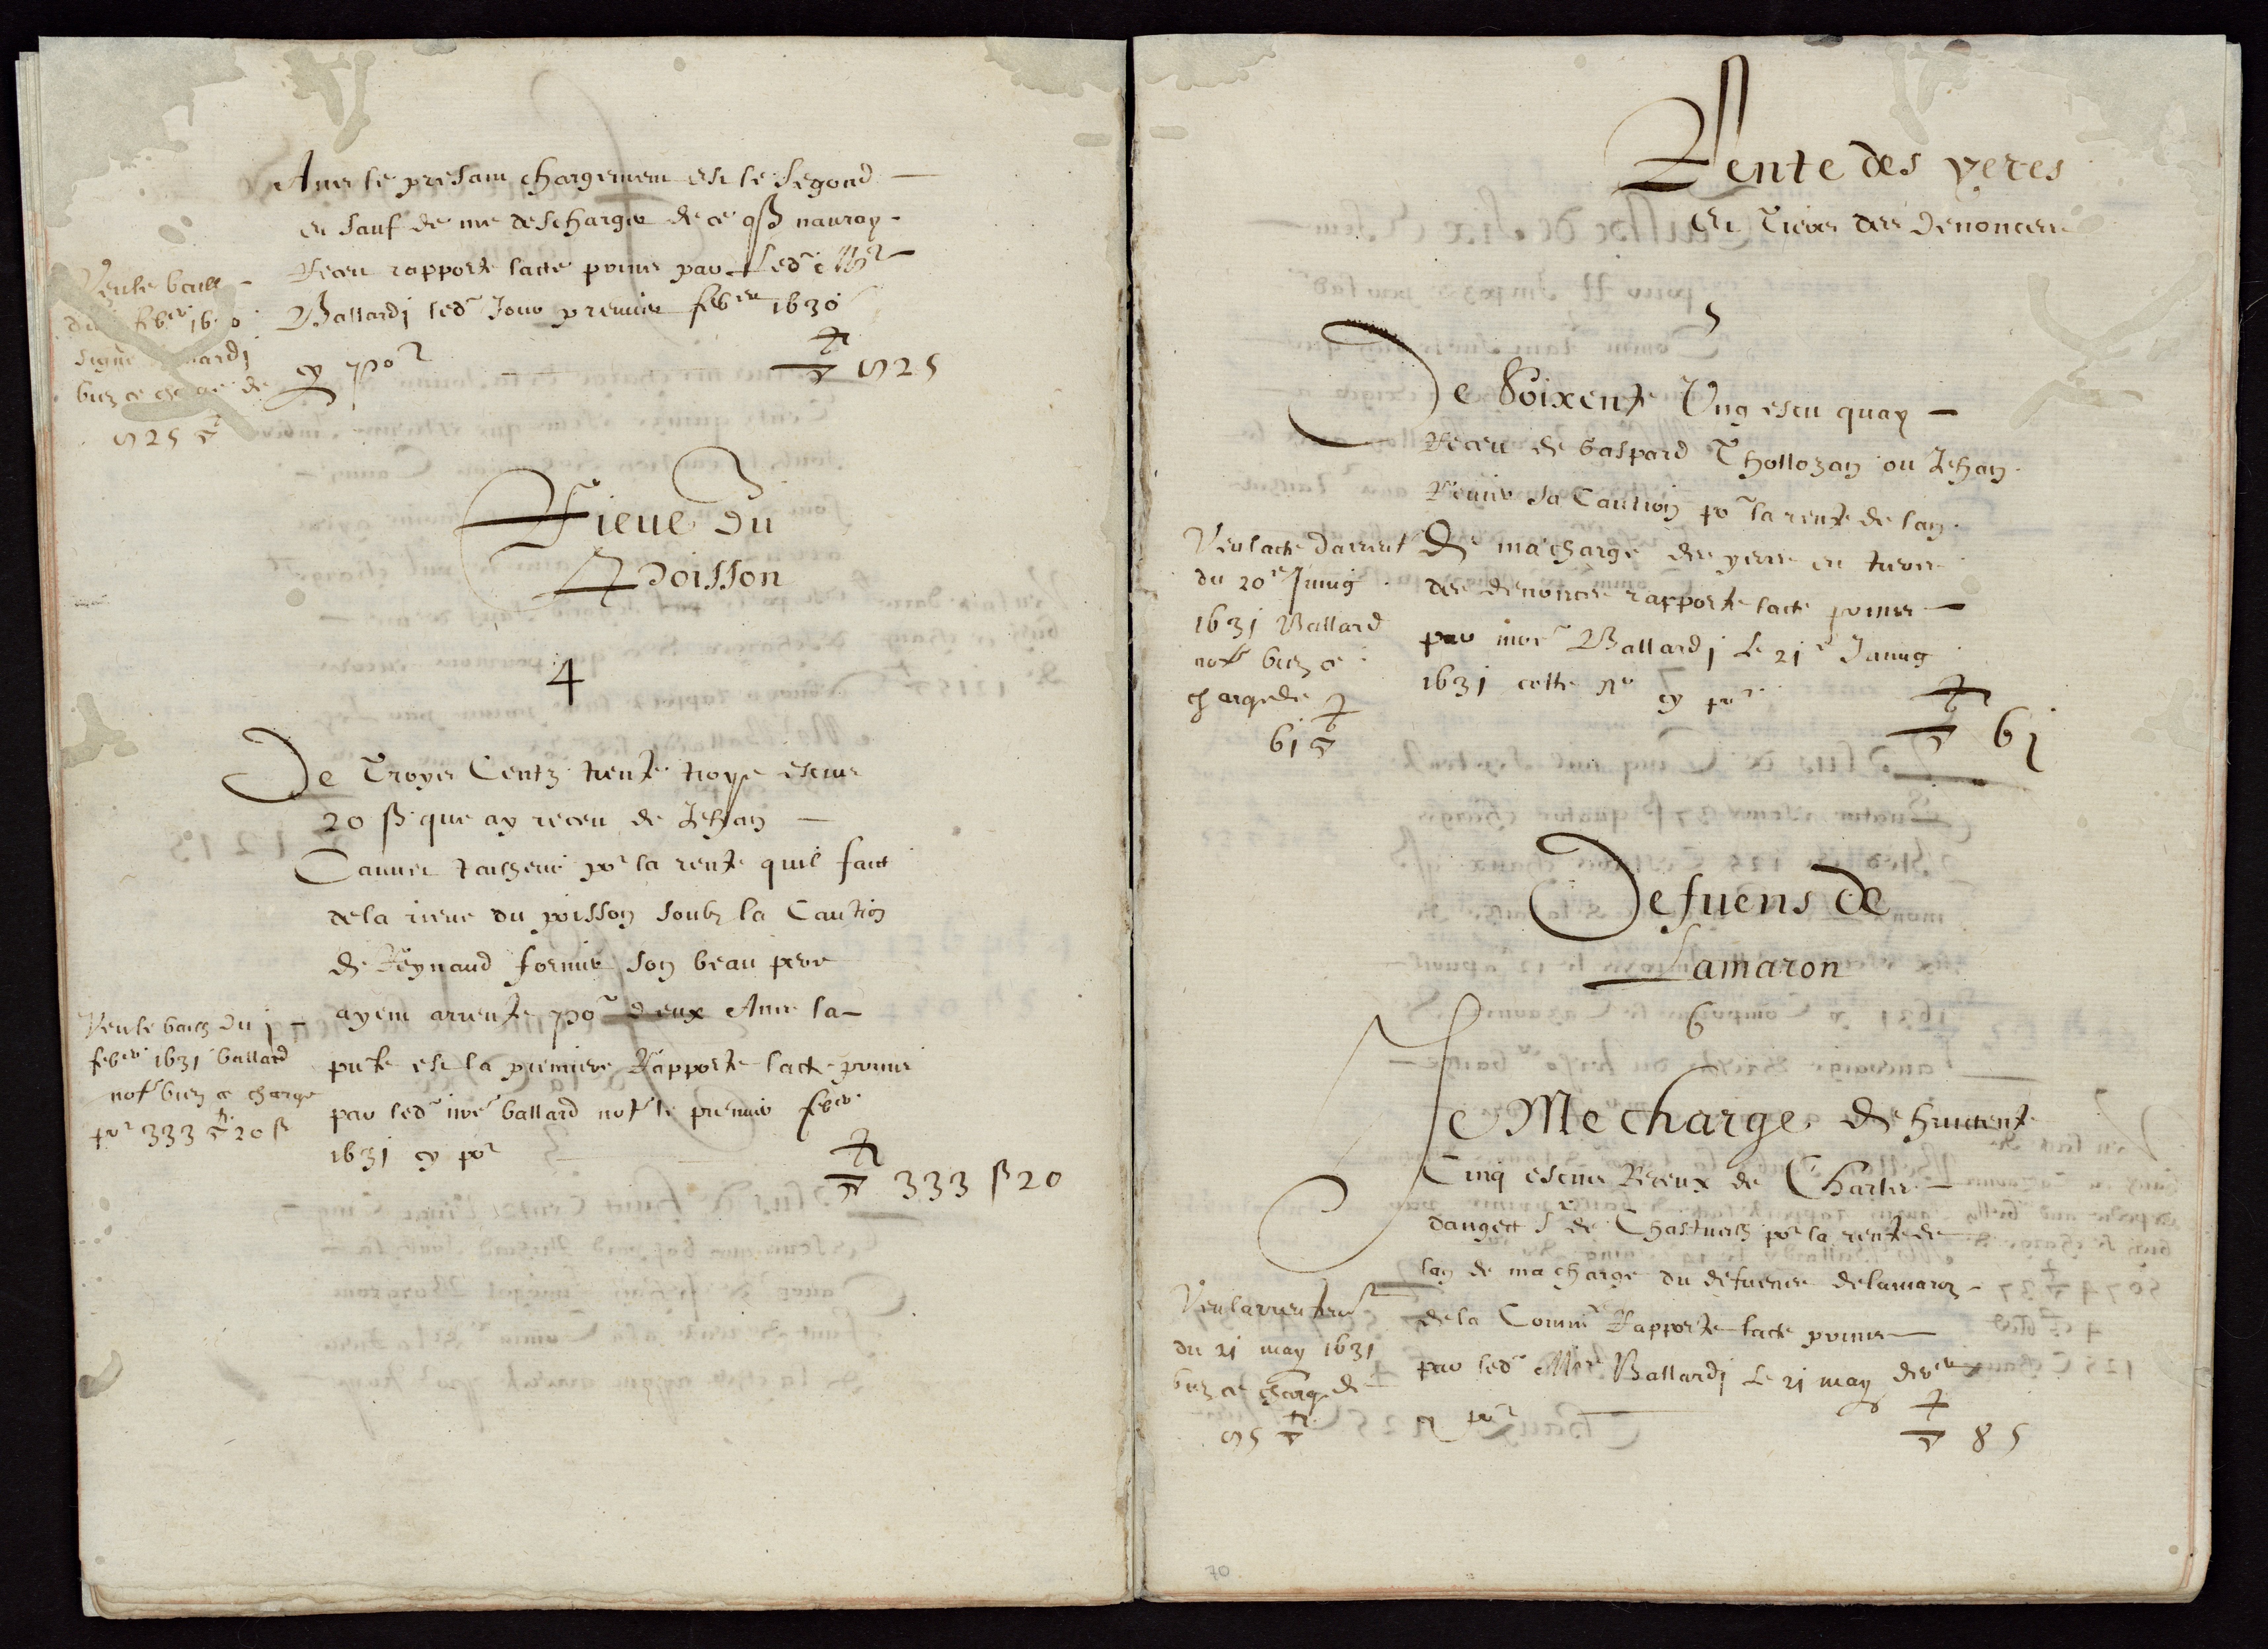 Annes le presant chargement est le segond
et sauf de me descharger de ce qß nauray
Receu rapporte lacte prinns par Led Mre
Ballardj led Jour premier febvier 1630
cy por ∇ 825
Veu le bailh
du febver 16 0
signé ardj
bien ce charge de
825 ∇
Rieue du
Poisson
4
De Troyes Centz trente troys escus
20 ß que ay receu de Jehan
Tauuet por la rente quil faict
de la rieue du poisson soubz la Caution
de Reynaud formier son beau pere
ayent arrente por deux Annes la
pnte est la premiere Rapporte lacte prinns
par led mre ballard notre le premier febver
1631 cy por
∇ 333 ß 20
Veu le bailh du j
febver 1631 ballard
notre bien ce charge
por 333 ∇ 20 ß
Rente des yeres
et Tieres des denonces
5
De Soixente Ung escu quay
Receu de Gaspard Thollozan ou Jehan
sa Caution por la rente de lan
de ma charge des yeres et tieres
des denonces rapporte lacte prinns
par mre Ballardj Le 21e Janug
1631 cotte no cy por
∇ 61
Veu lacte darrent
du 20e Junig
1631 Ballard
notre bien ce
charge de
61 ∇
Defuens de
Lamaron
6
Je Me charge de huictente
Cinq escus Receux de Charles
dangect Sr de Chastueilh por la rente de
lan de ma charge du defuens delamaron
de la Commté Rapporte lacte prinns
par led Mre Ballardj Le 21 may dern
cy por ∇ 85
Veu larrentemt
du 21 may 1631
bien ce charge de
85 ∇
70